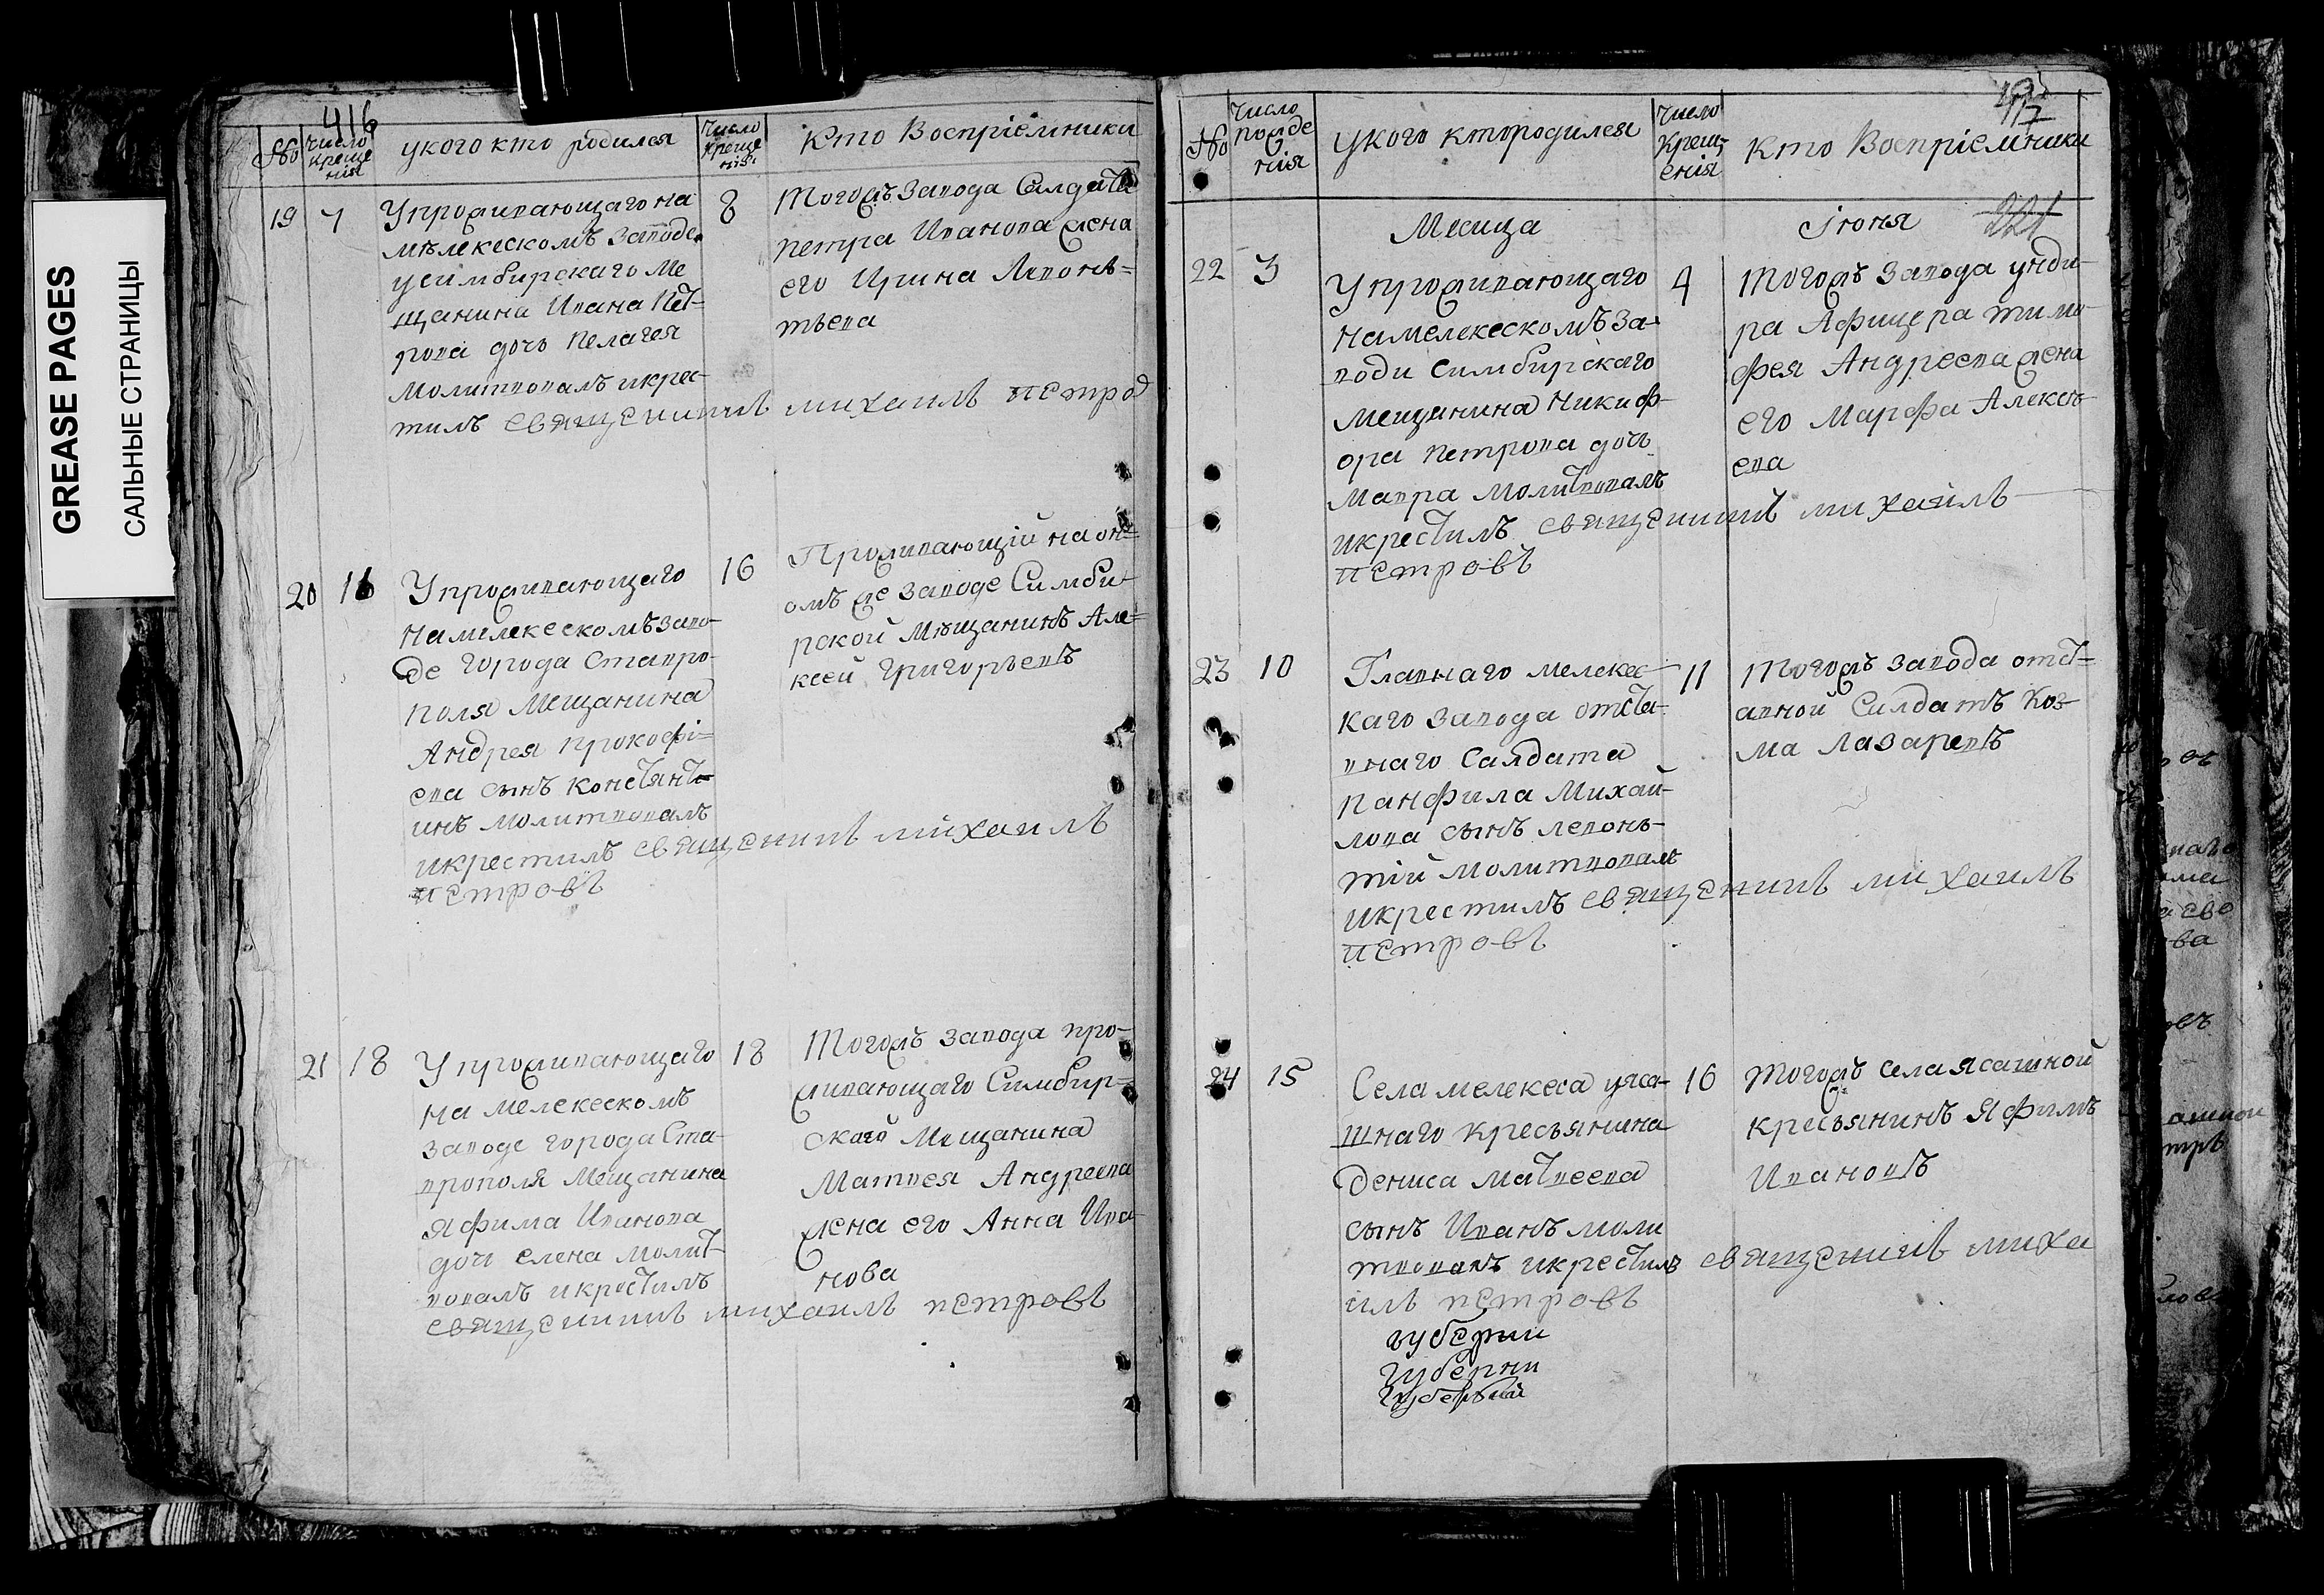 GREASE PAGES
САЛЬНЫЕ СТРАНИЦЫ
416
№
Число креще нія
укого кто родился
Число креще нія
Кто Воспріемники
19
7
8
Упроживающаго на
мѣлекескомъ Заводе
усимбирскаго Ме
щанина Ивана Пет-
рова дочь Пелагея
Молитвовалъ икрес-
тилъ священникъ михаилъ петров
Тогожъ Завода Салдата
петра Иванова жена
его Ирина Леонь=
тьева
20
16
16
Упроживающаго
Намелекескомъ заво-
де города Ставро-
поля Мещанина
Андрея Прокофі=
ева сынъ Констянт-
инъ молитвовалъ
икрестилъ священникъ михаилъ
петровъ
Проживающій на он=
омъ же Заводе Симби-
рской Мѣщанинъ Але=
ксей Григорьевъ
21
18
18
Упроживающаго
на мелекескомъ
Заводе города Ста-
врополя Мещанина
Яфима Иванова
дочь елена молит-
вовалъ икрестилъ
священникъ михаилъ петровъ
Тогожъ Завода про-
живающаго Симбир=
скаго Мещанина
Матвея Андреева
жена его Анна Ива-
нова
117
№
Число рожде нія
укого кто родился
Число Крещ- енія
Кто Воспріемники
Месица
Іюня
221
22
3
4
Упроживающаго
на мелекескомъ За-
води Симбирскаго
мещинина Никиф-
ора Петрова дочь
Мавра Молитвовалъ
икрестилъ священникъ михаилъ
петровъ
Тогожъ Завода унди-
ра Афицера тимо-
фея Андреева жена
его Марфа Алексѣ-
ева
23
10
11
Главнаго мелекес-
каго Завода отста-
внаго Салдата
Панфила Михай-
лова сынъ левонь-
тій молитвовалъ
икрестилъ священникъ михаилъ
петровъ
Тогожъ Завода отст=
авной Силдатъ Коз-
ма Лазаревъ
24
15
16
Села мелекеса уяса-
шнаго кресьянина
Дениса Матвеева
сынъ Иванъ моли
твовалъ икрестилъ священникъ миха
илъ петровъ
губерни
губерни
губерний
Тогожъ села ясашной
кресьянинъ Яфимъ
Ивановъ